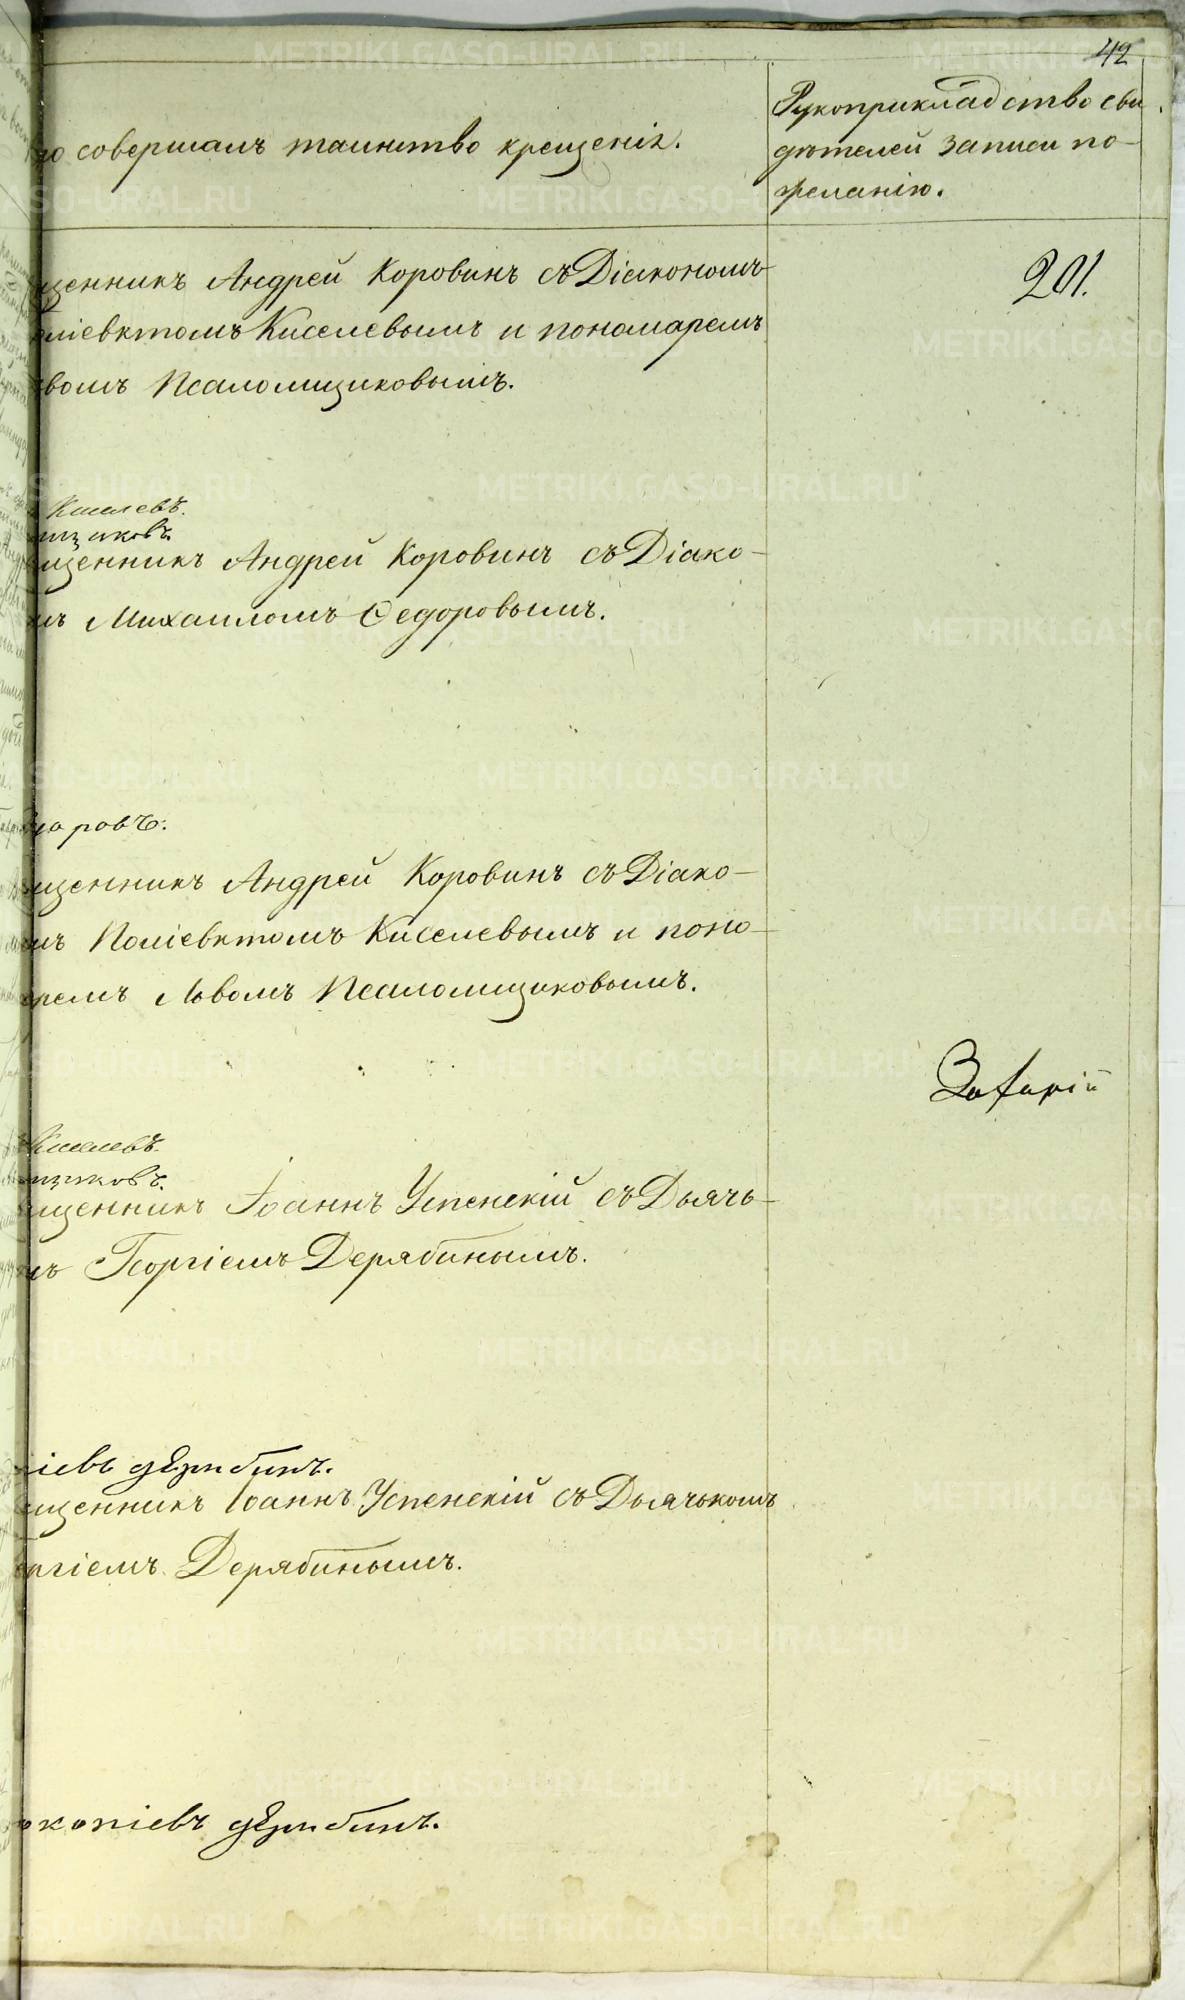 42
то совершалъ таинство крещенія.
Рукоприкладство сви
дѣтелей записи по-
желанію.
щенникъ Андрей Коровинъ съ Діакономъ
201.
ліевктомъ Киселевымъ и пономаремъ
ьвомъ Псаломщиковымъ.
Киселевъ.
щиковъ.
щенникъ Андрей Коровинъ съ Діако-
мъ Михаиломъ Ѳедоровымъ.
доровъ.
щенникъ Андрей Коровинъ съ Діако-
мъ Поліевктомъ Киселевымъ и поно-
аремъ Львомъ Псаломщиковымъ.
Киселевъ.
щиковъ.
щенникъ Іоаннъ Успенскій съ Дьячь-
мъ Георгіемъ Дерябинымъ.
ріевъ дерябинъ.
щенникъ Іоаннъ Успенскій съ Дьячькомъ
оргіемъ Дерябинымъ.
окопіевъ дерябинъ.
METRIKI.GASO-URAL.RU